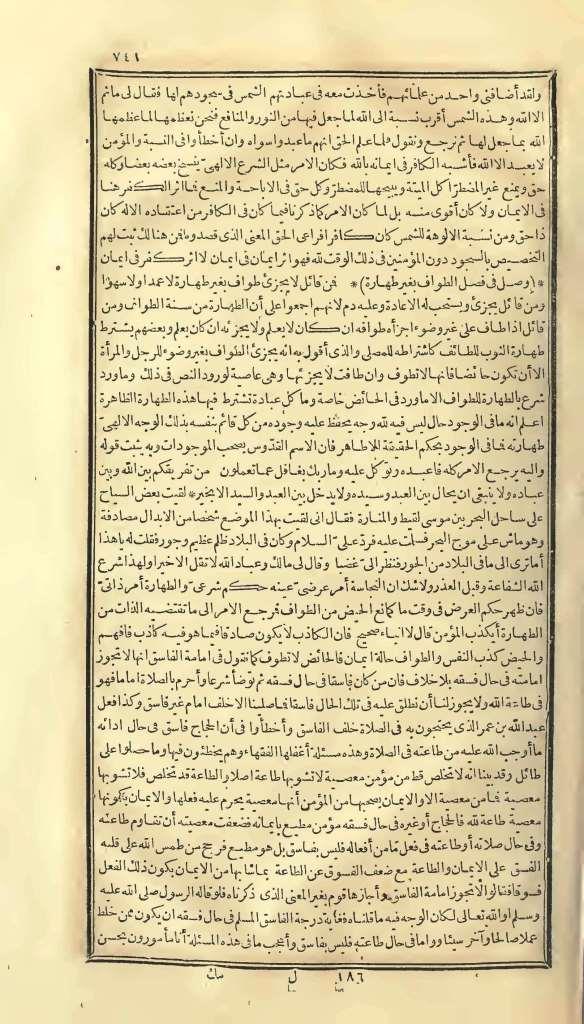 ٧٤١
ولقد أضافني واحد من علمائهم فأخذت معه في عبادتهم الشمس في سجودهم لها فقال لي ما ثم
الا الله وهذه الشمس أقرب نسبة الى الله لما جعل فيها من النور والمنافع فنحن نعظمها لما عظمها
الله بما جعل لها ثم نرجع ونقول فلما علم الحق انهم ما عبدوا سواه وان أخطأوا في النسبة والمؤمن
لا يعبد الا الله فأشبه الكافر في ايمانه بالله فكان الامر مثل الشرع الالهي ينسخ بعضه بعضا وكله
حق ويمنع غير المضطر أكل الميتة ويبيحها للمضطر وكل حق في الاباحة والمنع فما اثر الكفر هنا
في الايمان ولا كان أقوى منه بل لما كان الامر كما ذكرنا فيما كان في الكافر من اعتقاده الاله كان
ذا حق ومن نسبة الالوهة للشمس كان كافرا فراعى الحق المعنى الذي قصدوه فن هنالك ثبت لهم
التخصيص بالسجود دون المؤمنين في ذلك الوقت لله فهو اثر ايمان في ايمان لا اثر كفر في ايمان
*(وصل في فصل الطواف بغير طهارة)* فمن قائل لا يجزئ طواف بغير طهارة لا عمدا ولا سهوا
ومن قائل يجزئ ويستحب له الاعادة وعليه دم لانهم اجمعوا على أن الطهارة من سنة الطواف ومن
قائل اذا طاف على غير وضوء اجزأه طوافه ان كان لا يعلم ولا يجزئه ان كان يعلم وبعضهم يشترط
طهارة الثوب للطائف كاشتراطه للمصلى والذي أقول به انه يجزئ الطواف بغير وضوء للرجل والمرأة
الا أن تكون حائضا فانها لا تطوف وان طافت لا يجزئها وهي عاصية لورود النص في ذلك وما ورد
شرع بالطهارة للطواف الا ما ورد في الحائض خاصة وما كل عبادة تشترط فيها هذه الطهارة الظاهرة
اعلم انه ما في الوجود حال ليس فيه لله وجه يحفظ عليه وجوده من كل قائم بنفسه بذلك الوجه الالهي
طهارته فما في الوجود بحكم الحقيقة الا طاهر فان الاسم القدوس يصحب الموجودات وبه يثبت قوله
واليه يرجع الامر كله فاعبده وتوكل عليه وما ربك بغافل عما تعملون من تفريقكم بين الله وبين
عباده ولا ينبغي ان يحال بين العبد وسيده ولا يدخل بين العبد والسيد الا بخير* لقيت بعض السياح
على ساحل البحر بين مرسى لقيط والمنارة فقال اني لقيت بهذا الموضع شخصا من الابدال مصادفة
وهو ماش على موج البحر فسلمت عليه فرد علي السلام وكان في البلاد ظلم عظيم وجور فقلت له يا هذا
أما ترى الى ما في البلاد من الجور فنظر الي مغضبا وقال لي مالك وعباد الله لا تقل الا خيرا ولهذا شرع
الله الشفاعة وقبل العذر ولا شك ان النجاسة أمر عرضي عينه حكم شرعي والطهارة أمر ذاتي
فان ظهر حكم العرض في وقت ما كمانع الحيض من الطواف فرجع الامر الى ما تقتضيه الذات من
الطهارة أيكذب المؤمن قال لا انباء صحيح فان الكاذب لا يكون صادقا فيما هو فيه كاذب فافهم
والحيض كذب النفس والطواف حالة ايمان فالحائض لا تطوف كما نقول في امامة الفاسق انها لا تجوز
امامته في حال فسقه بلا خلاف فان من كان فاسقا في حال فسقه ثم توضأ شرعا وأحرم بالصلاة اماما فهو
في طاعة الله ولا يجوز لنا أن نطلق عليه في تلك الحال فاسقا فما صلينا الا خلف امام غير فاسق وكذا فعل
عبد الله بن عمر الذي يحتجون به في الصلاة خلف الفاسق وأخطأوا في أن الحجاج فاسق في حال ادائه
ما أوجب الله عليه من طاعته في الصلاة وهذه مسئلة أغفلها الفقهاء وهم يخبطون فيها وما حصلوا على
طائل وقد بينا انه لا تخلص قط من مؤمن معصية لا تشوبها طاعة اصلا والطاعة قد تخلص فلا تشوبها
معصية فما من معصية الا والايمان يصحبها من المؤمن أنها معصية يحرم عليه فعلها والايمان بكونها
معصية طاعة لله فالحجاج أو غيره في حال فسقه مؤمن مطيع بايمانه فضعفت معصيته أن تقاوم طاعته
وفي حال صلاته أو طاعته في فعل ما من أفعاله فليس بفاسق بل هو مطيع فرجح من طمس الله على قلبه
الفسق على الايمان والطاعة مع ضعف الفسوق عن الطاعة بما شابها من الايمان بكون ذلك الفعل
فسوقا فقالوا لا تجوز امامة الفاسق وأجازها قوم بغير المعنى الذي ذكرناه فلو قاله الرسول صلى الله عليه
وسلم او الله تعالى لكان الوجه فيه ما قلناه فغاية درجة الفاسق المسلم في حال فسقه ان يكون ممن خلط
عملا صالحا وآخر سيئا واما في حال طاعته فليس بفاسق وأعجب ما في هذه المسئلة أنا مأمورون بحسن
١٨٦ ل